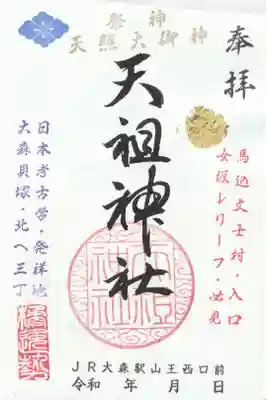 奉拝
馬込文士村・入口
女優レリーフ・必見
祭神
天照大御神
天祖神社
日本考古学・発祥地
大森貝塚・北へ三丁
JR大森駅山王西口前
令和 年 月 日